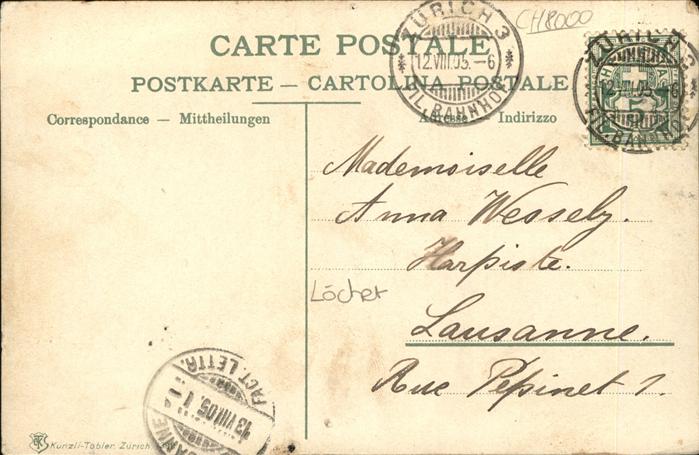 CH8000
CARTE POSTALE
POSTKARTE — CARTOLINA POSTALE
Correspondance — Mittheilungen
Adresse — Indirizzo
ZÜRICH 3
12.VIII.05.—6
FIL. BAHNHOF
ZÜRICH 3
12.VIII.05.—6
FIL. BAHNHOF
Mademoiselle
Anna Wessely.
Harpiste.
Löcher
Lausanne.
Rue Pépinet 1.
FACT. LETTR.
13 VIII.05. 1
Künzli-Tobler, Zürich